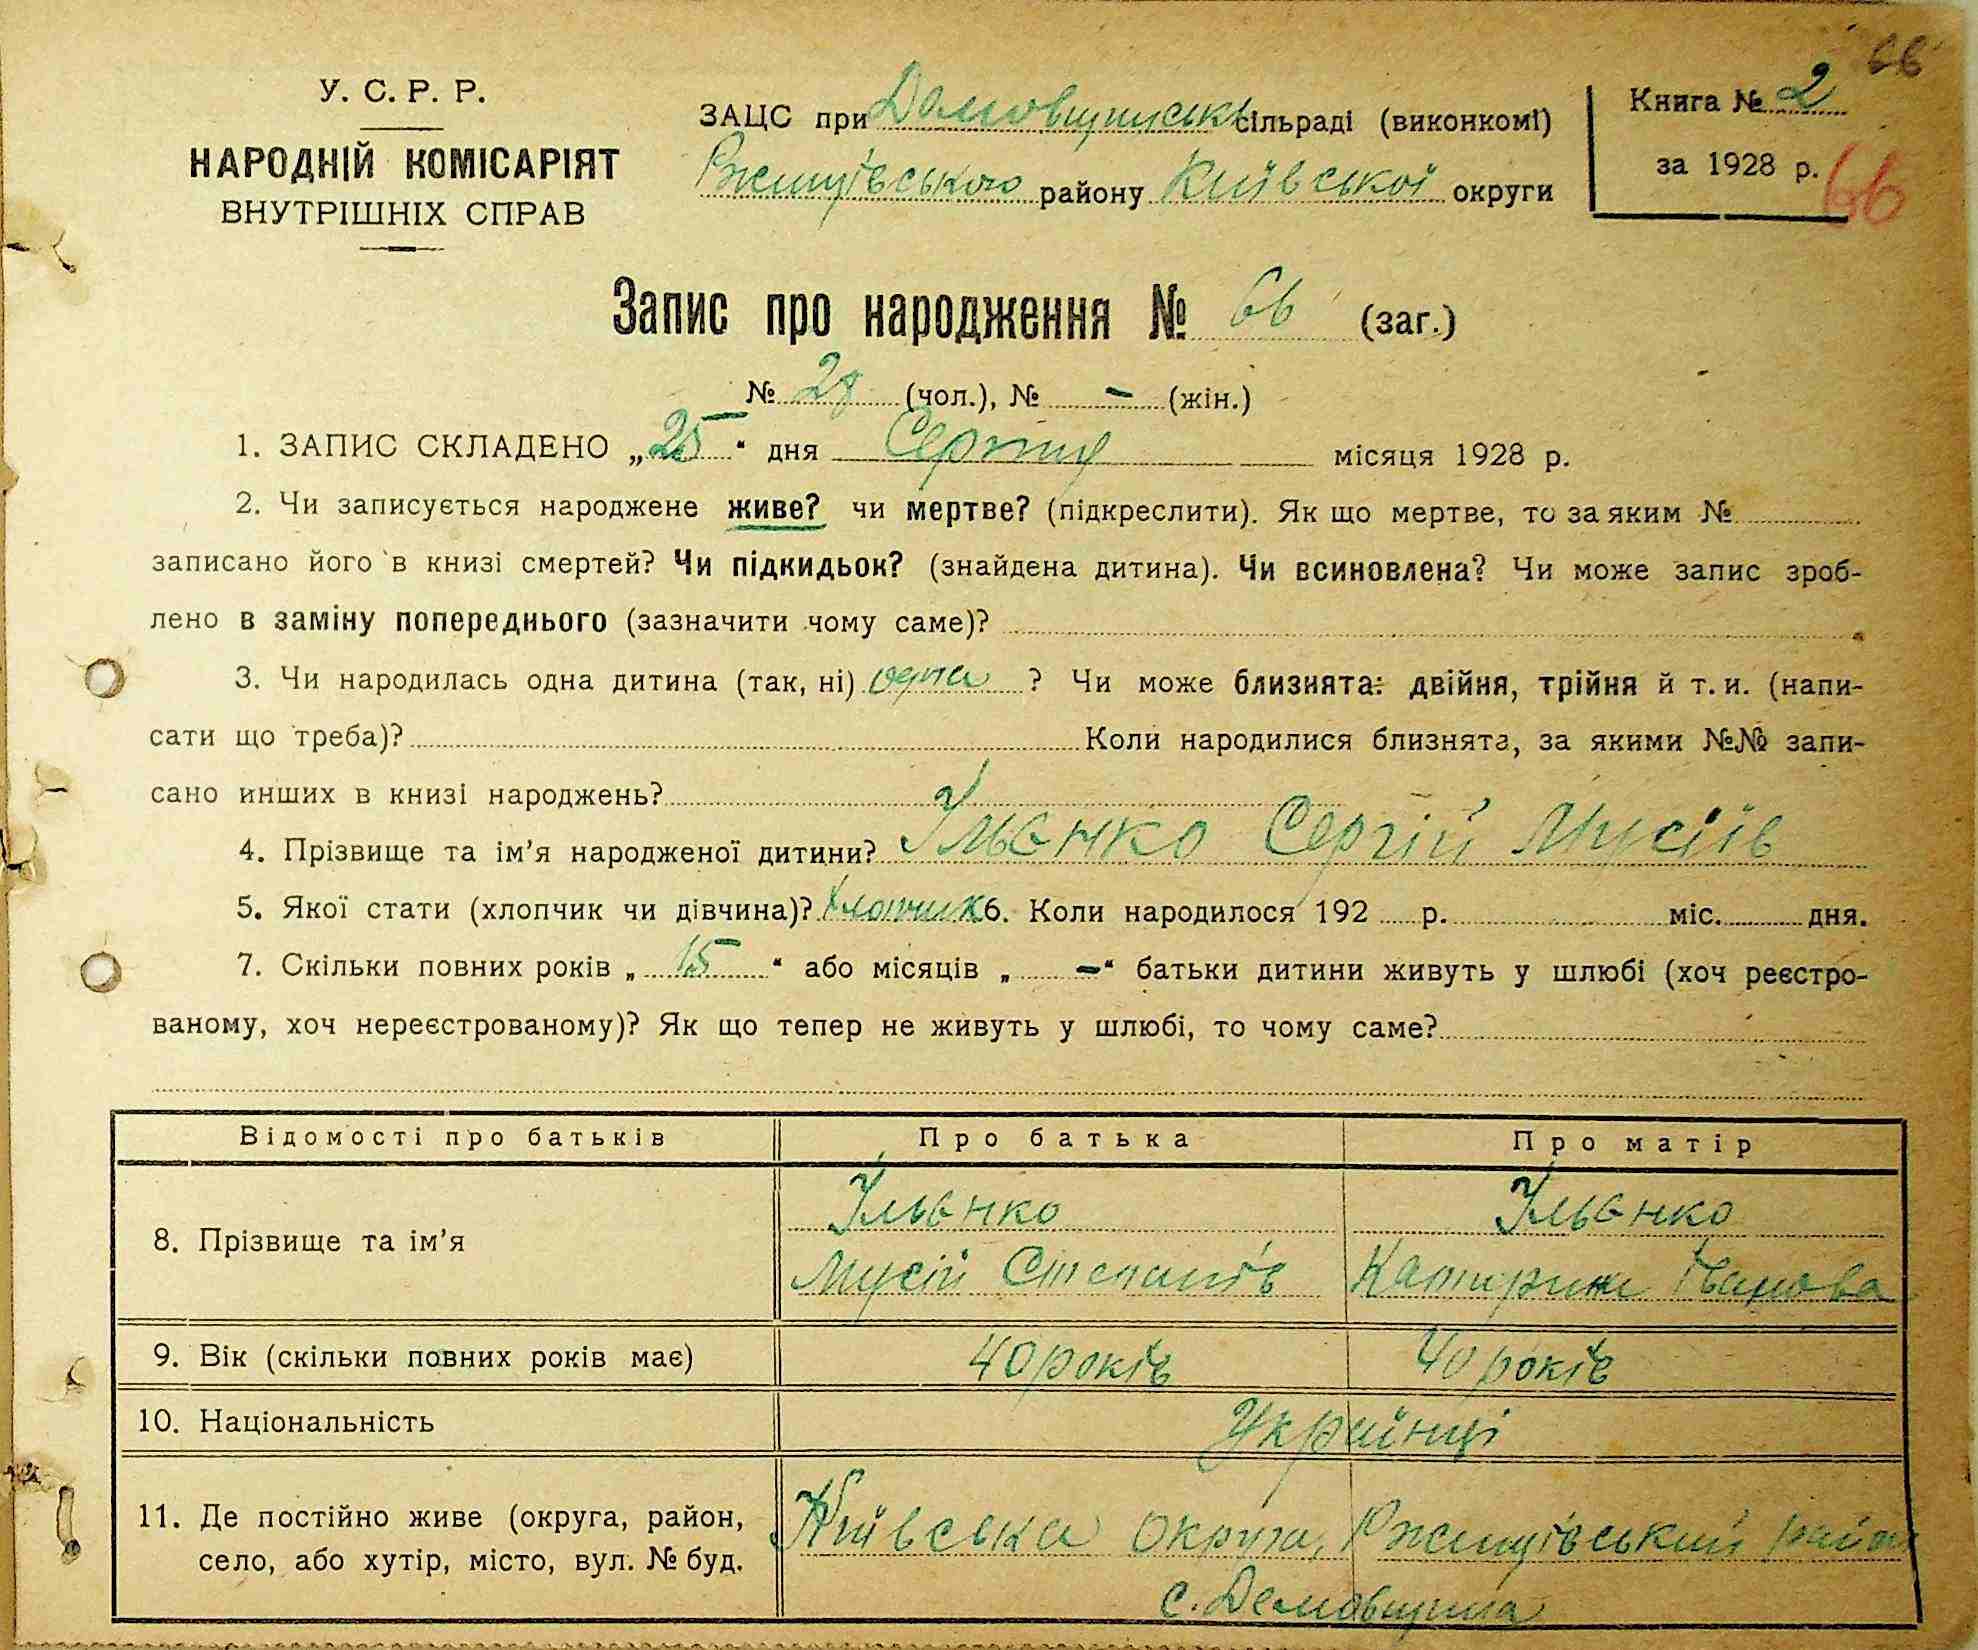 66
У. С. Р. Р.
НАРОДНІЙ КОМІСАРІЯТ
ВНУТРІШНІХ СПРАВ
ЗАЦС при Демовщинській сільраді (виконкомі)
Ржищівського району Київської округи
Книга № 2
за 1928 р.
66
Запис про народження № 66 (заг.)
№ 28 (чол.), № – (жін.)
1. ЗАПИС СКЛАДЕНО „25“ дня Серпня місяця 1928 р.
2. Чи записується народжене живе? чи мертве? (підкреслити). Як що мертве, то за яким №
записано його в книзі смертей? Чи підкидьок? (знайдена дитина). Чи всиновлена? Чи може запис зроб-
лено в заміну попереднього (зазначити чому саме)?
3. Чи народилась одна дитина (так, ні) одна ? Чи може близнята: двійня, трійня й т. и. (напи-
сати що треба)? Коли народилися близнята, за якими №№ запи-
сано инших в книзі народжень?
4. Прізвище та ім’я народженої дитини? Ільєнко Сергій Мусіїв
5. Якої стати (хлопчик чи дівчина)? Хлопчик 6. Коли народилося 192 р. міс. дня.
7. Скільки повних років „ 15 “ або місяців „ – “ батьки дитини живуть у шлюбі (хоч реєстро-
ваному, хоч нереєстрованому)? Як що тепер не живуть у шлюбі, то чому саме?
Відомості про батьків Про батька Про матір
8. Прізвище та ім’я
Ільєнко
Мусій Степанів
Ільєнко
Катирина Іванова
9. Вік (скільки повних років має) 40 років 40 років
10. Національність Українці
11. Де постійно живе (округа, район,
село, або хутір, місто, вул. № буд.
Київська округа, Ржищівський район
с. Демовщина